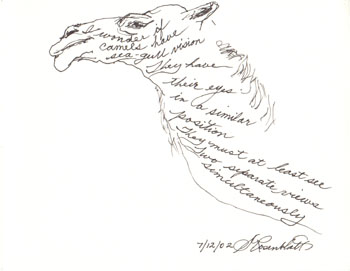 I wonder if
camels have
sea-gull vision
They have
their eyes
in a similar
position
They must at least see
Two separate views
simultaneously
7/12/02 S Rosenblatt